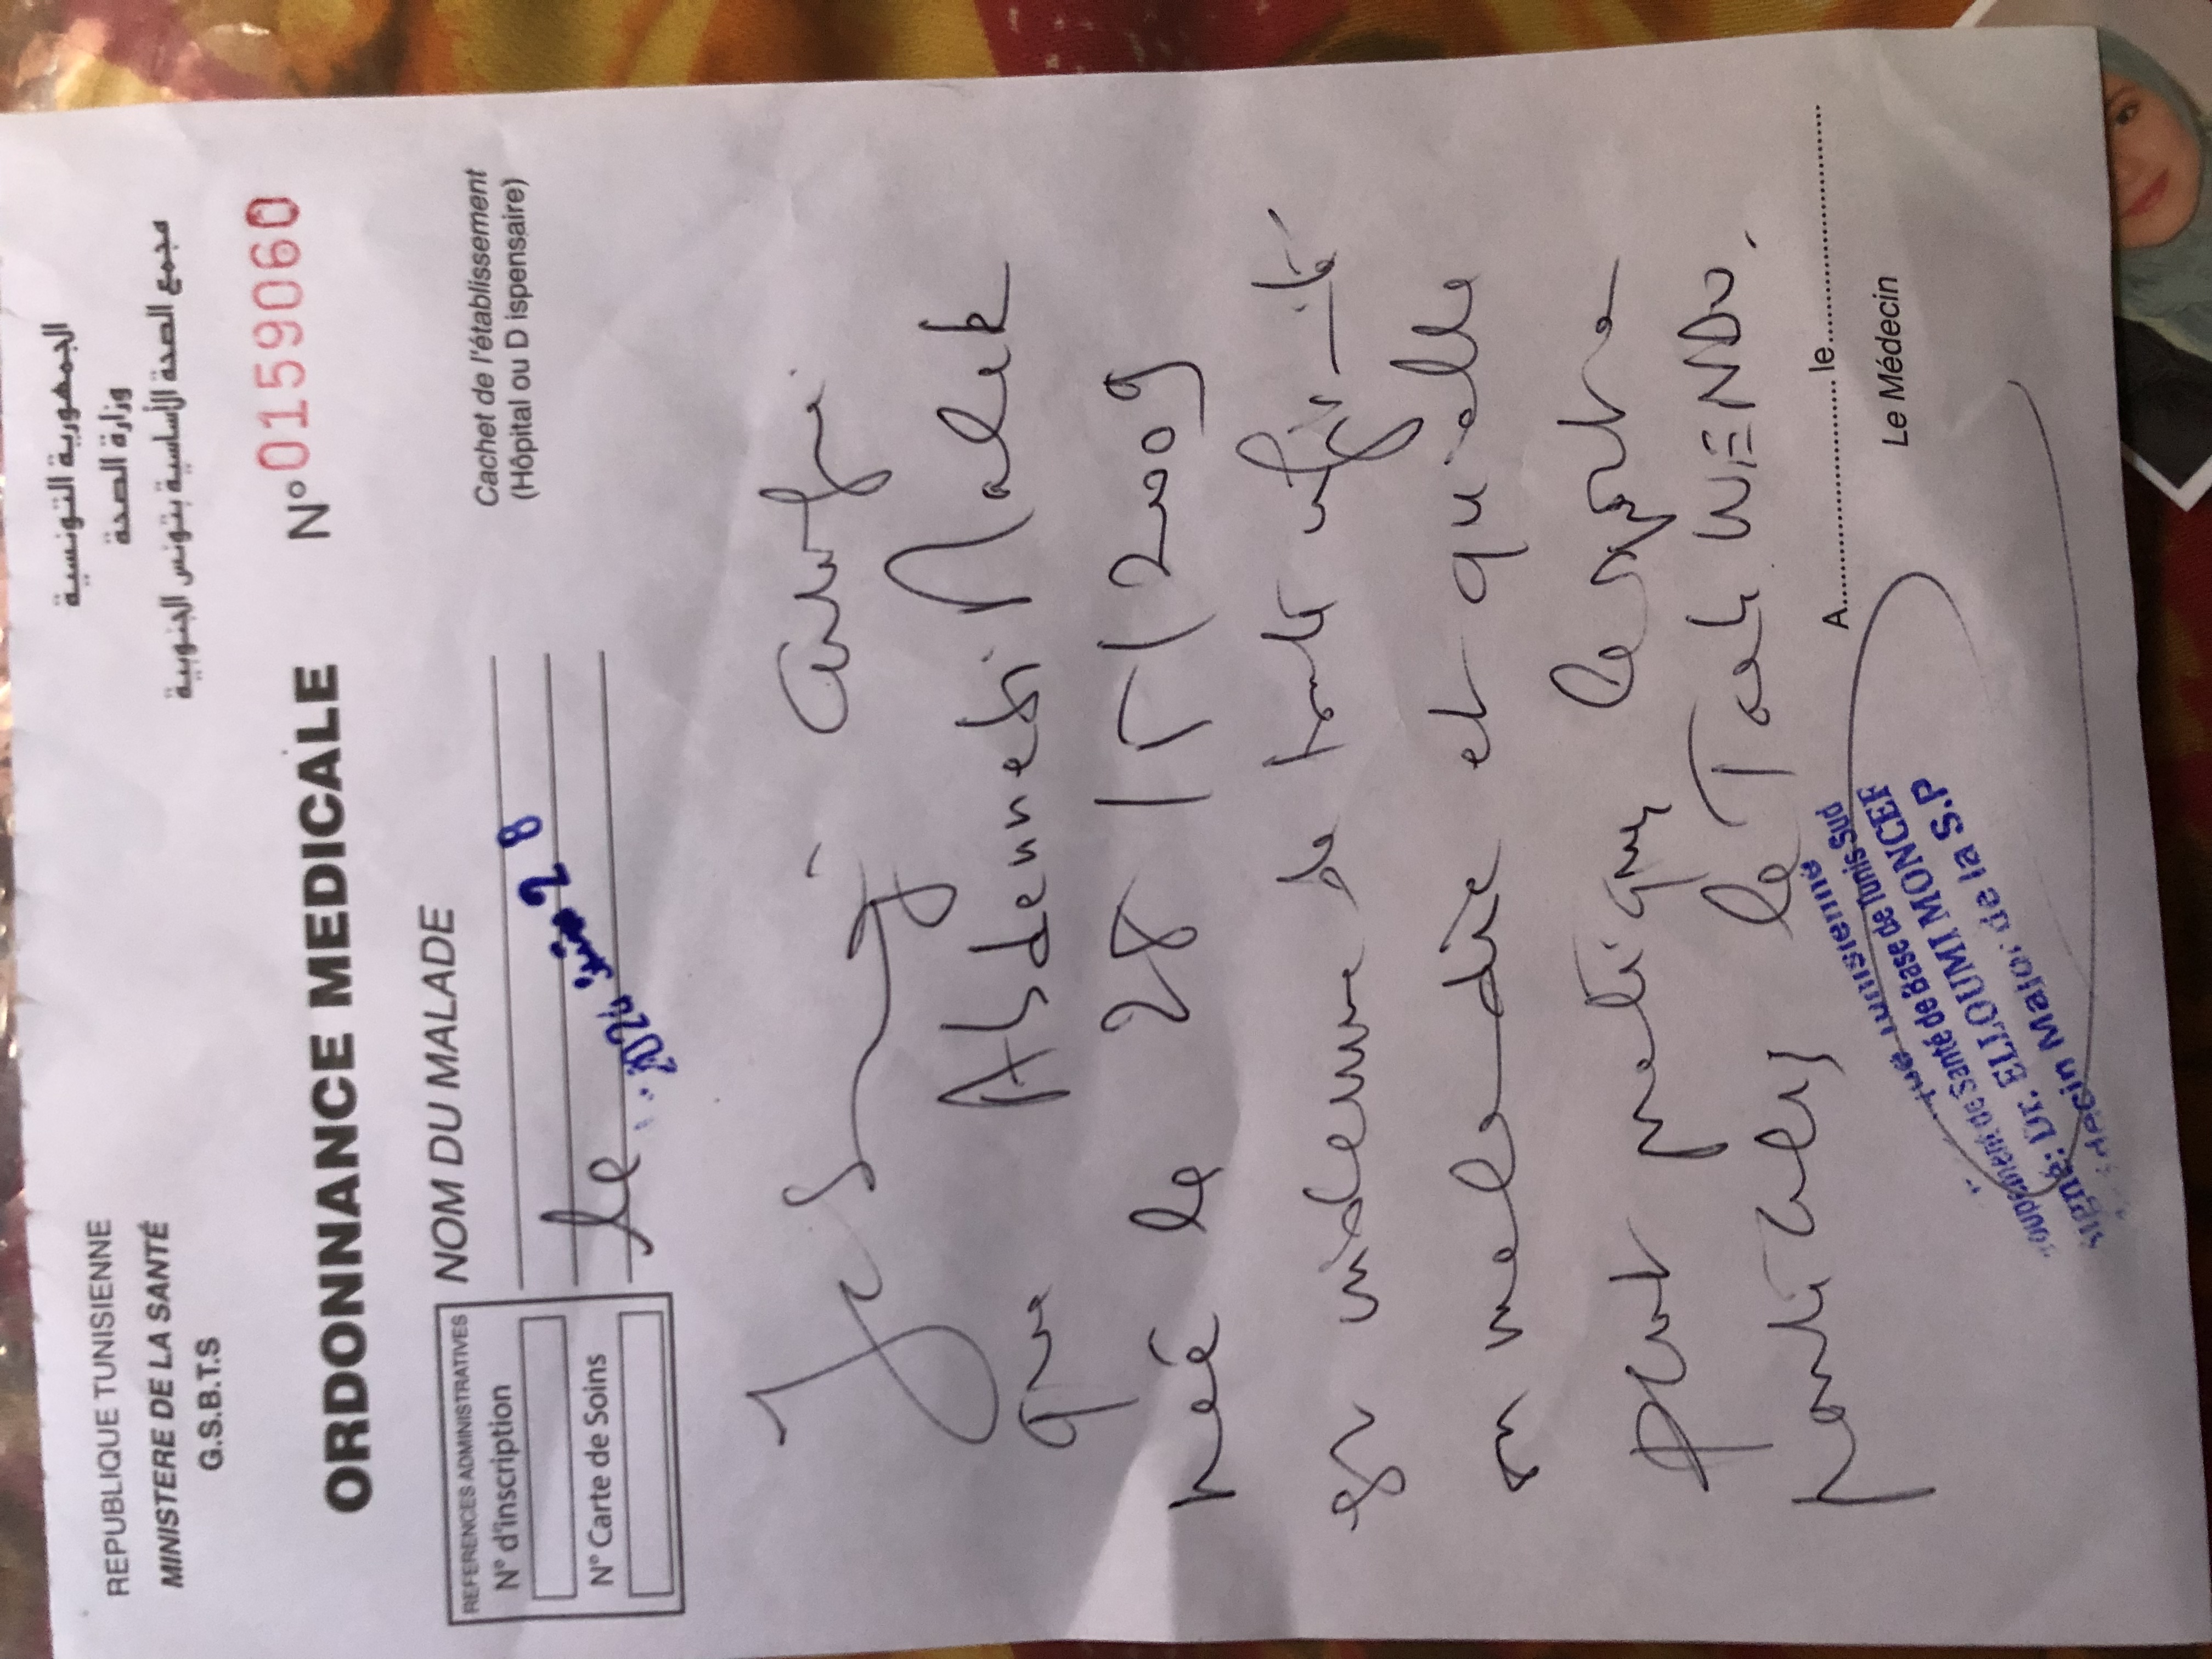 REPUBLIQUE TUNISIENNE
MINISTERE DE LA SANTÉ
G.S.B.T.S
الجمهورية التونسية
وزارة الصحة
مجمع الصحة الأساسية بتونس الجنوبية
ORDONNANCE MEDICALE N° 0159060
REFERENCES ADMINISTRATIVES
N° d'inscription
N° Carte de Soins
NOM DU MALADE
le 28 جوان 2024
Cachet de l'établissement
(Hôpital ou D ispensaire)
Je soussigné certifie
que Abdennebi Malek
née le 28 / 5 / 2009
est indemne de toute
maladie et qu'elle
peut pratiquer le sport
particulier le TAEKWENDO.
A............ le............
Le Médecin
Tunisienne
Groupement de Santé de Base de Tunis Sud
Signé: Dr. ELLOUMI MONCEF
Médecin Major de la S.P